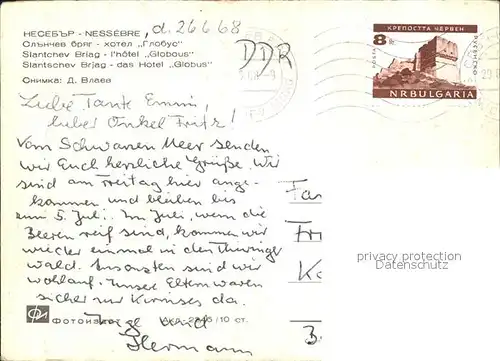 НЕСЕБЪР - NESSÈBRE, d. 26 6 68
Слънчев бряг - хотел „Глобус"
Slantchev Briag - l'hôtel „Globous"
Slantschev Brjag - das Hotel „Globus"
Снимка: Д. Влаев
DDR
КРЕПОСТТА ЧЕРВЕН
8
NRBULGARIA
Liebe Tante Emmi,
lieber Onkel Fritz!
Vom Schwarzen Meer senden
wir Euch herzliche Grüße. Wir
sind am Freitag hier ange-
kommen und bleiben bis
zum 5. Juli. Im Juli, wenn die
Beeren reif sind, kommen wir
wieder einmal in den Thüringer
wald. Ansonsten sind wir
wohlauf. Unsere Eltern waren
sicher zur Kirmses da.
privacy protection
Datenschutz
ФОТОИЗДАТ АКЛ-2346/10 ст.
und
Hermann